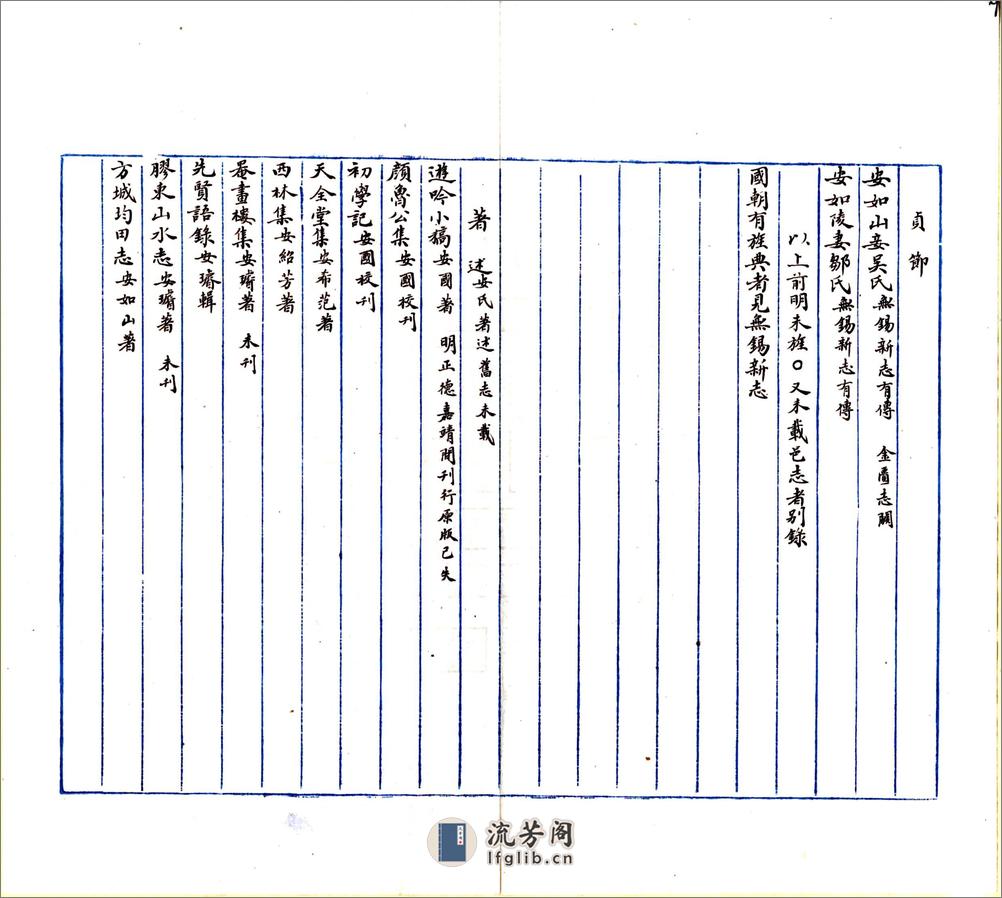 貞節
安如山妾吴氏無錫新志有傳 金匱志闕
安如陵妻鄒氏無錫新志有傳
以上前明未旌○又未載邑志者别錄
國朝有旌典者見無錫新志
著述安氏著述舊志未載
遊吟小稿安國著 明正德嘉靖間刊行原版已失
顏魯公集安國校刊
初學記安國校刊
天全堂集安希范著
西林集安紹芳著
罨畫樓集安璿著 未刊
先賢語錄安璿輯
膠東山水志安璿著 未刊
方城均田志安如山著
流芳阁
lfglib.cn